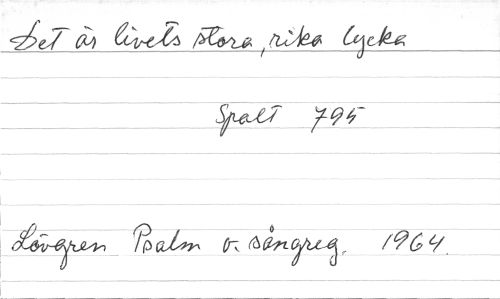 Det är livets stora, rika lycka
Spalt 795
Lövgren Psalm o. sångreg. 1964.